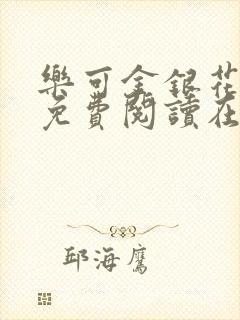 樂可金銀花
免費閱讀在
邱海鷹